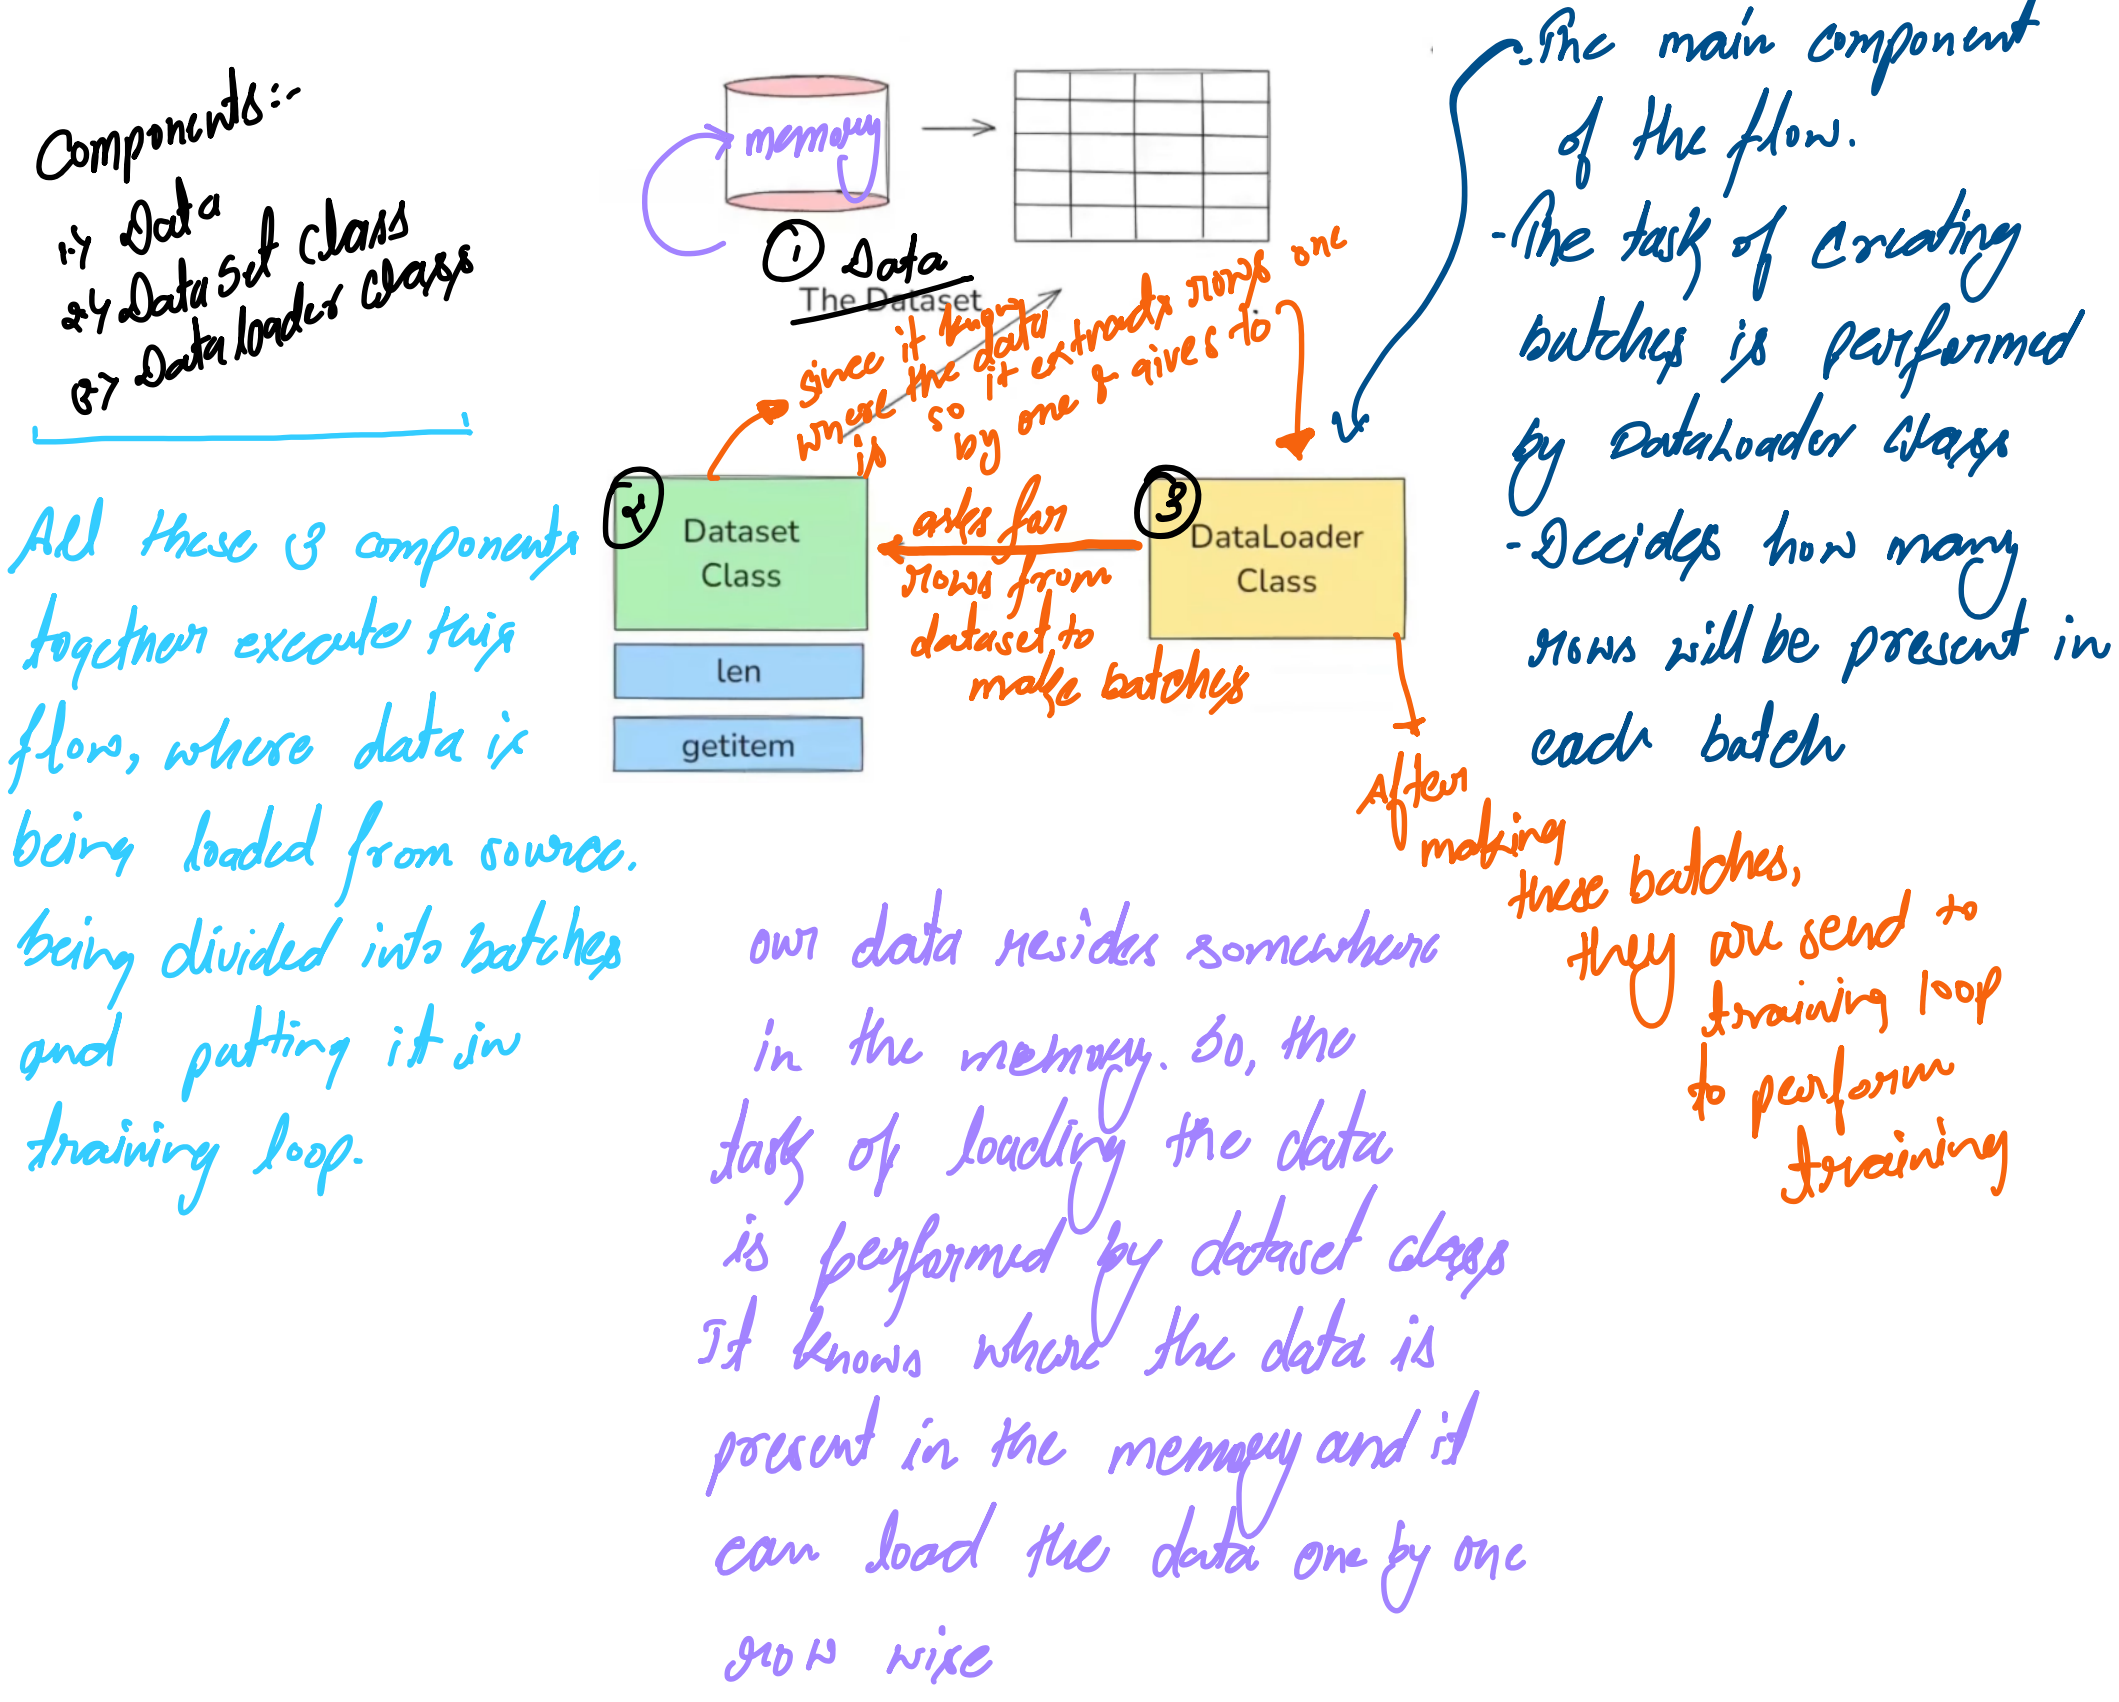 Components:-
1.) Data
2.) Dataset class
3.) Dataloader class
All these 3 components
together execute this
flow, where data is
being loaded from source.
being divided into batches
and putting it in
training loop.
memory
1 Data
The Dataset
since it knows
where the data
is so it extracts rows one
by one & gives to
2
Dataset
Class
len
getitem
asks for
rows from
dataset to
make batches
3
DataLoader
Class
- The main component
of the flow.
- The task of creating
batches is performed
by DataLoader class
- Decides how many
rows will be present in
each batch
After
making
these batches,
they are send to
training loop
to perform
training
our data resides somewhere
in the memory. So, the
task of loading the data
is performed by dataset class
It knows where the data is
present in the memory and it
can load the data one by one
row wise